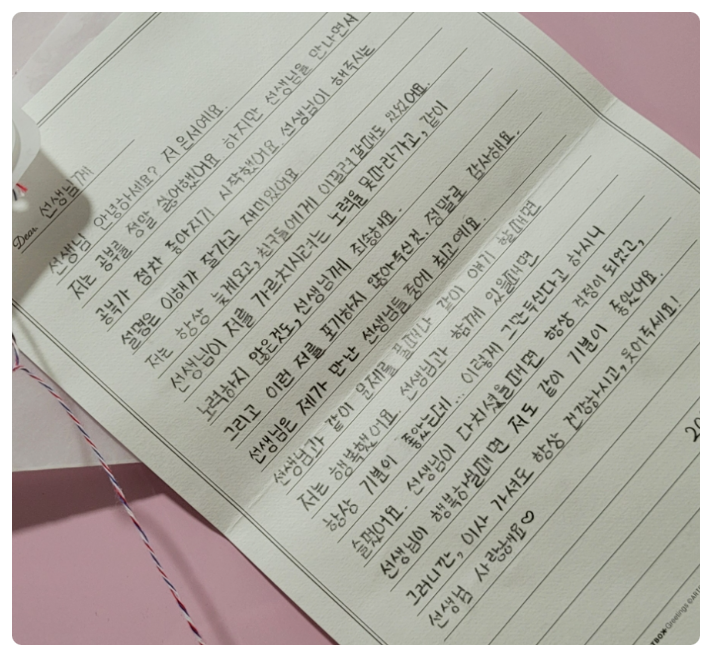 Dear. 선생님께
선생님 안녕하세요? 저 은서예요.
저는 공부를 정말 싫어했어요 하지만 선생님을 만나면서
공부가 점차 좋아지기 시작했어요. 선생님이 해주시는
설명은 이해가 잘가고 재미있어요
저는 항상 늦게오고, 친구들에게 이끌려갈때도 있었어요.
선생님이 저를 가르치시려는 노력을 못따라가고, 같이
노력하지 않은것도, 선생님께 죄송해요.
그리고 이런 저를 포기하지 않아주신것. 정말로 감사해요.
선생님은 제가 만난 선생님들 중에 최고예요.
선생님과 같이 문제를 풀때나 같이 얘기 할때면
저는 행복했어요. 선생님과 함께 있을때면
항상 기분이 좋았는데.. 이렇게 그만두신다고 하시니
슬펐어요. 선생님이 다치셨을때면 항상 걱정이 되었고,
선생님이 행복하실때면 저도 같이 기분이 좋았어요.
그러니깐, 이사 가셔도 항상 건강하시고, 웃어주세요!
선생님 사랑해요♡
20